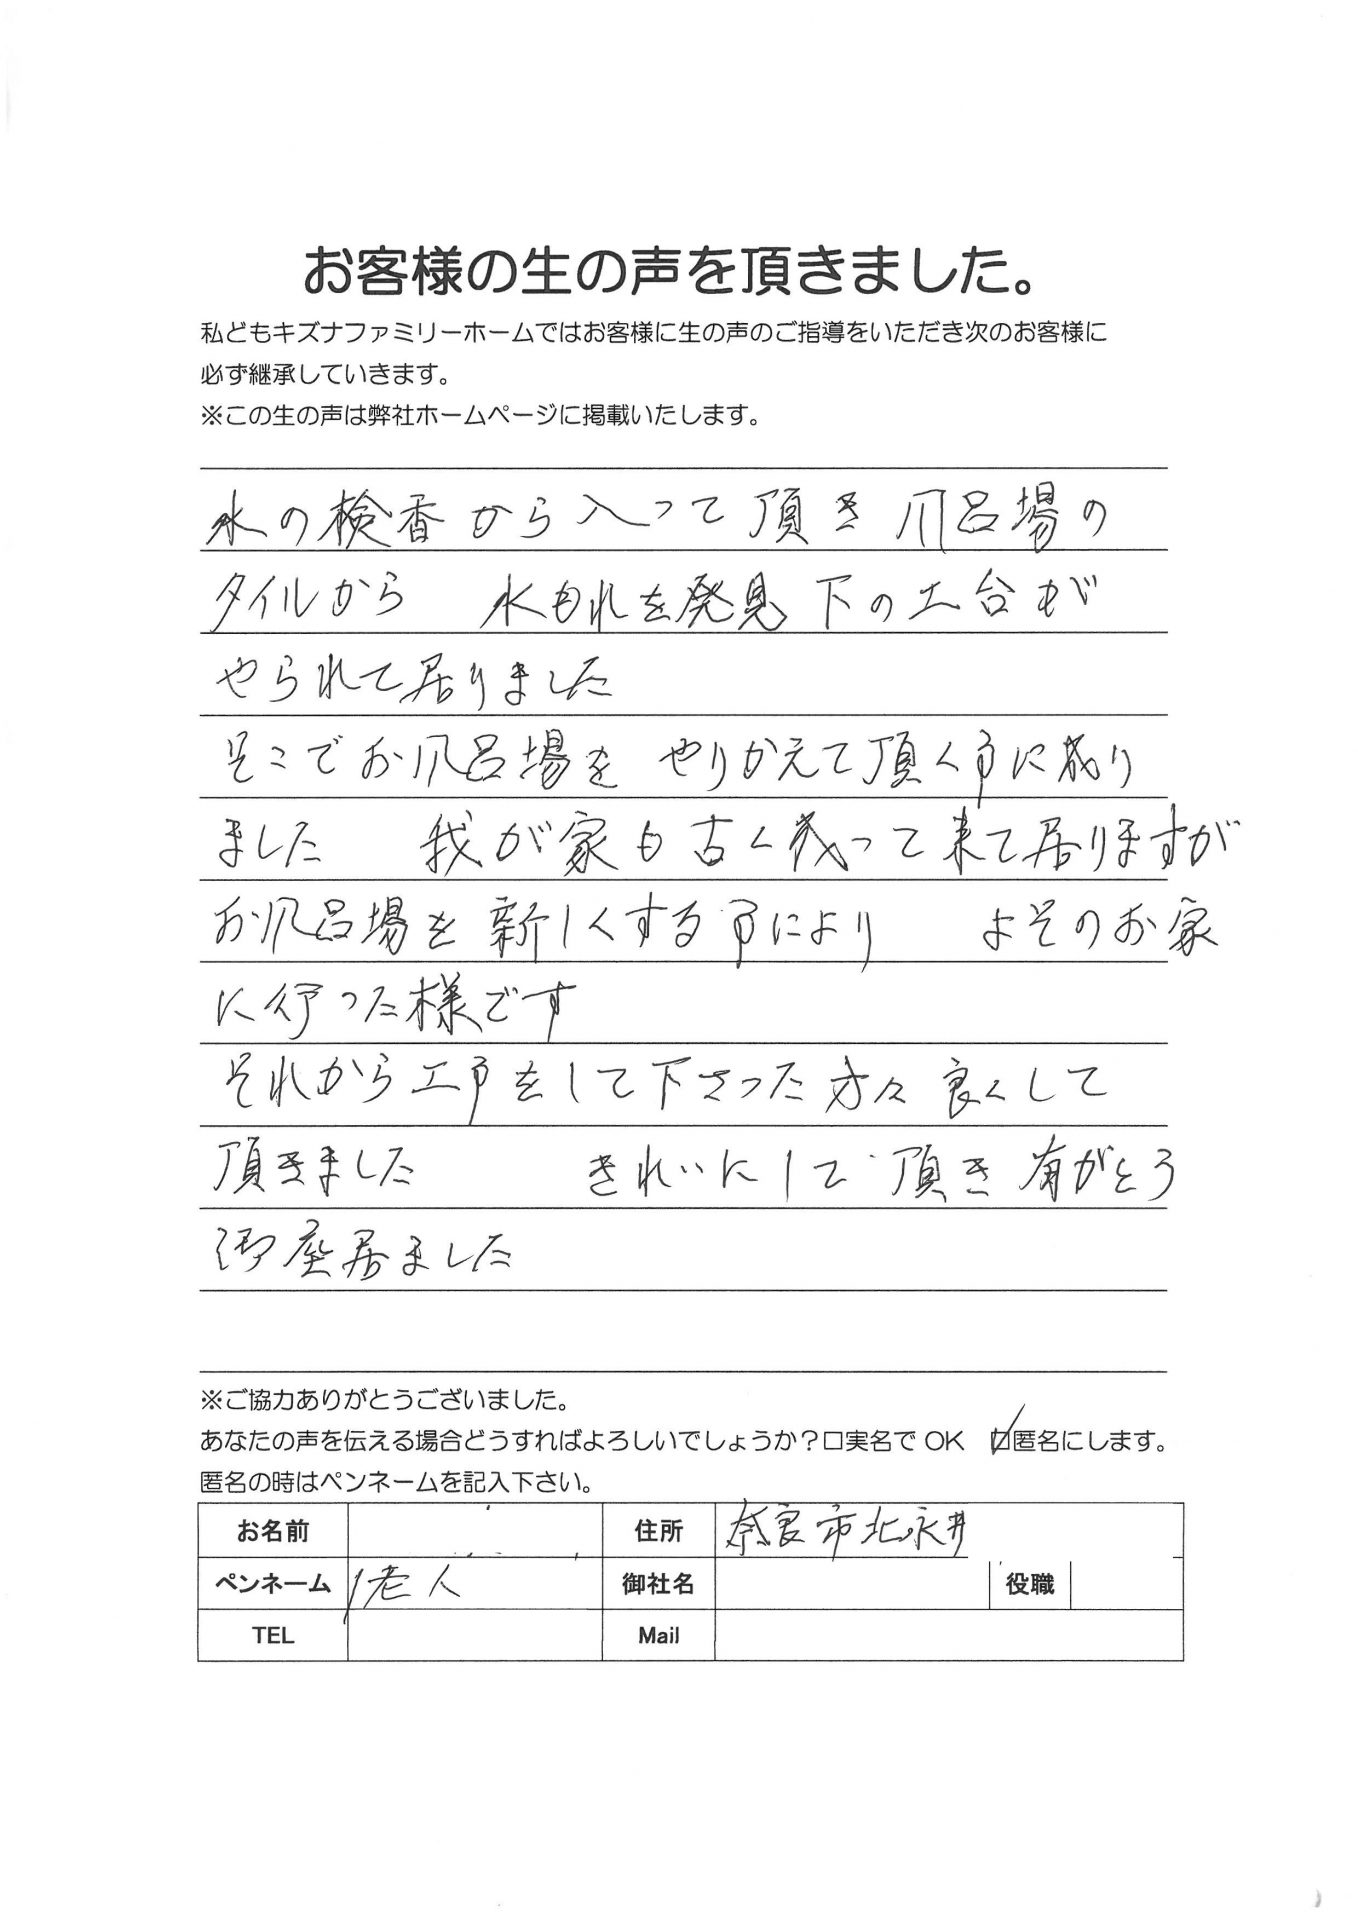 お客様の生の声を頂きました。
私どもキズナファミリーホームではお客様に生の声のご指導をいただき次のお客様に
必ず継承していきます。
※この生の声は弊社ホームページに掲載いたします。
水の検査から入って頂き 風呂場の
タイルから 水もれを発見 下の土台が
やられて居りました
そこでお風呂場を やりかえて頂く事に成り
ました 我が家も古く成って来て居りますが
お風呂場を新しくする事により よそのお家
に行った様です
それから工事をして下さった方々良くして
頂きました きれいにして頂き有がとう
御座居ました
※ご協力ありがとうございました。
あなたの声を伝える場合どうすればよろしいでしょうか?□実名で OK ☑匿名にします。
匿名の時はペンネームを記入下さい。
お名前 住所 奈良市北永井
ペンネーム 老人 御社名 役職
TEL Mail